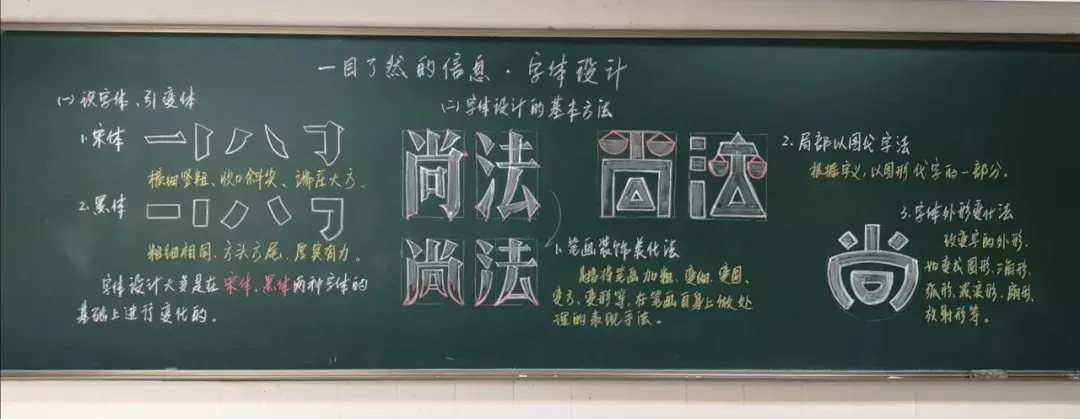 一目了然的信息·字体设计
(一)识字体、引变体
1.宋体
横细竖粗、收口斜尖、端庄大方。
2.黑体
粗细相同、方头方尾、厚实有力。
字体设计大类是在宋体、黑体两种字体的
基础上进行变化的。
(二)字体设计的基本方法
尚法
尚法
1.笔画装饰美化法
是指将笔画加粗、变细、变圆、
变方、变形等,在笔画自身上做处
理的表现手法。
尚法
2.局部以图代字法
根据字义,以图形代字的一部分。
3.字体外形变化法
改变字的外形,
如变成圆形、三角形、
弧形、波浪形、扇形、
放射形等。
尚